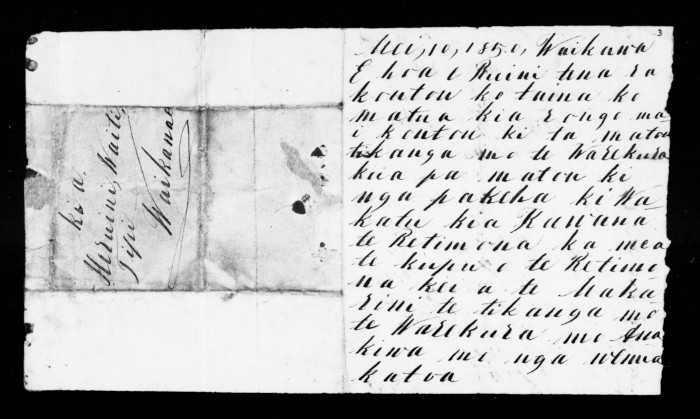 ki a
Hiruini, Waiti,
Tipi
Waikanae
3
Mei, 10, 1850, Waikawa
E hoa e Ruini tena ra
koutou ko taina ko
matua kia rongo ma
i koutou ki ta matou
tikanga mo te Warekura
kua pa matou ki
nga pakeha ki Wa
katu kia Kawana
te Retimona ka mea
te kupu o te Retimo
na kei a te Maka
rini te tikanga mo
te Warekura mo Ana
kiwa mo nga wenua
katoa